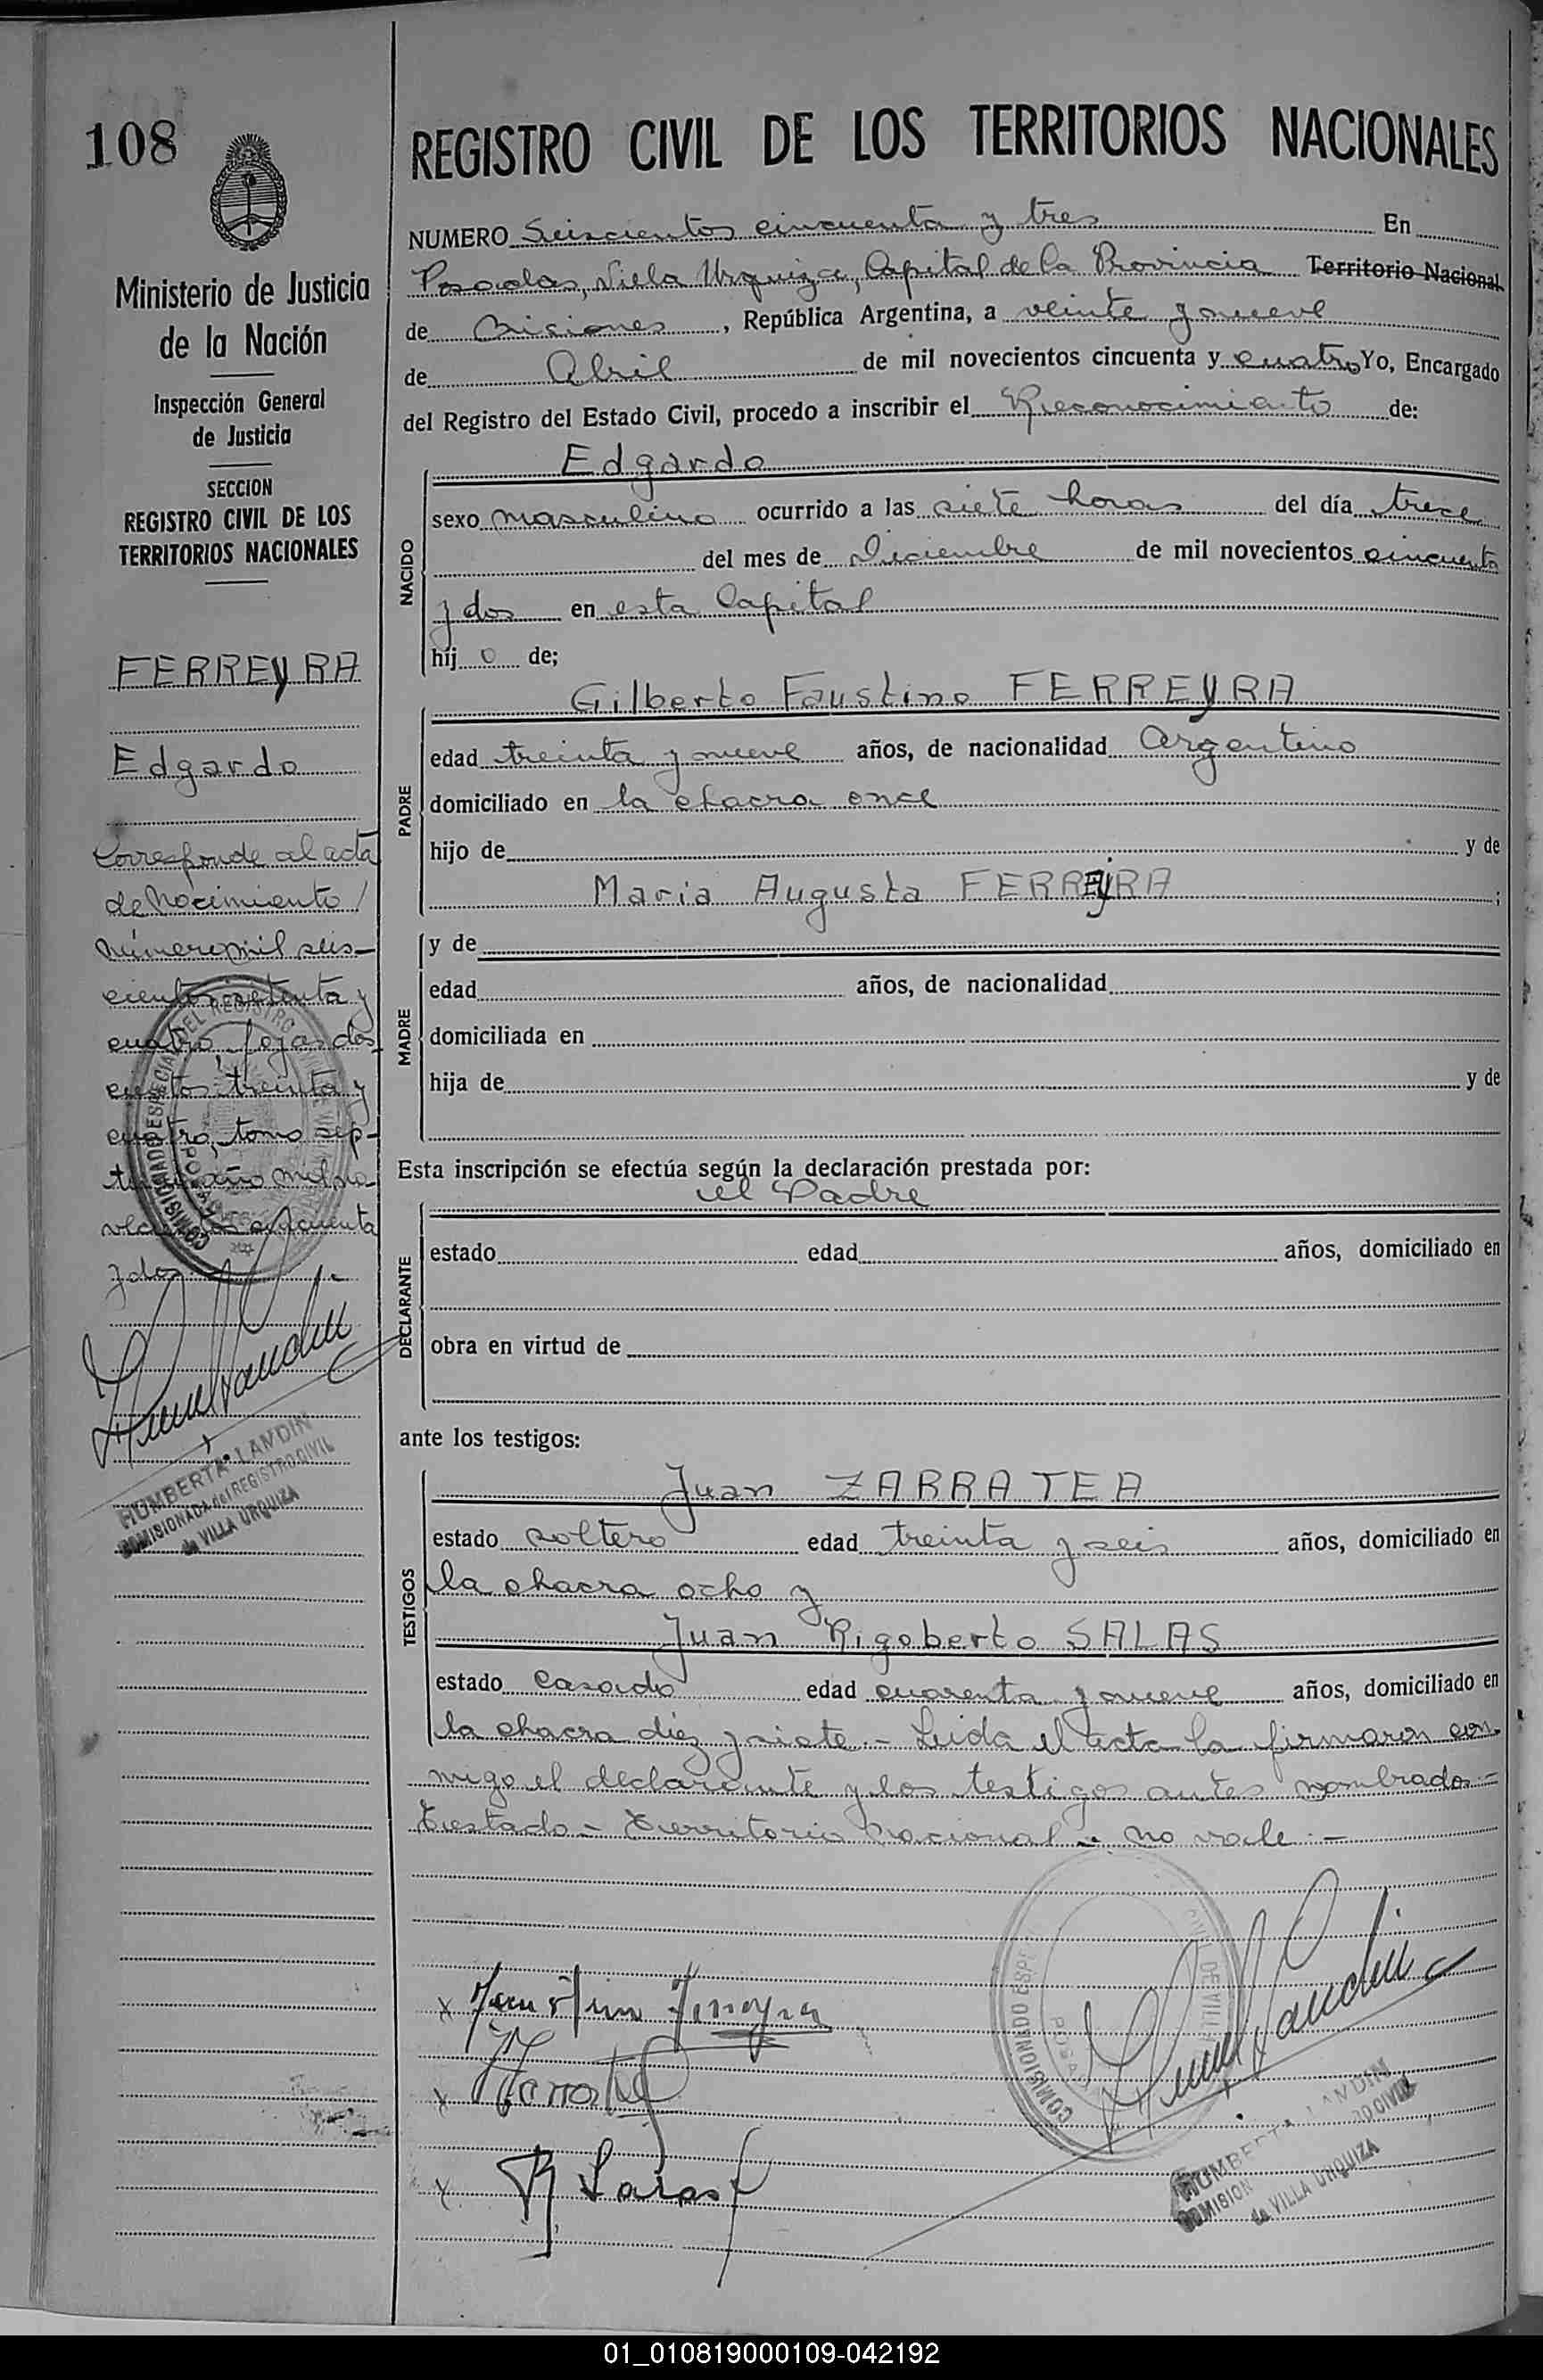 108
Ministerio de Justicia
de la Nación
Inspección General
de Justicia
SECCION
REGISTRO CIVIL DE LOS
TERRITORIOS NACIONALES
FERREyRA
Edgardo
Corresponde al acta
de Nacimiento /
Número mil seis-
cientos setenta y
cuatro, fojas dos
cientos treinta y
cuatro, tomo sép-
año mil no-
vecientos cincuenta
y dos.
HUMBERTA LANDIN
COMISIONADA del REGISTRO CIVIL
de VILLA URQUIZA
REGISTRO CIVIL DE LOS TERRITORIOS NACIONALES
NUMERO Seiscientos cincuenta y tres En
Posadas, Villa Urquiza, Capital de la Provincia Territorio Nacional
de Misiones, República Argentina, a veinte y nueve
de Abril de mil novecientos cincuenta y cuatro Yo, Encargado
del Registro del Estado Civil, procedo a inscribir el Reconocimiento de:
NACIDO
Edgardo
sexo masculino ocurrido a las siete horas del día trece
del mes de Diciembre de mil novecientos cincuenta
y dos en esta Capital
hij o de;
PADRE
Gilberto Faustino FERREyRA
edad treinta y nueve años, de nacionalidad Argentino
domiciliado en la chacra once
hijo de y de
Maria Augusta FERREyRA ;
MADRE
y de
edad años, de nacionalidad
domiciliada en
hija de y de
Esta inscripción se efectúa según la declaración prestada por:
DECLARANTE
el Padre
estado edad años, domiciliado en
obra en virtud de
ante los testigos:
TESTIGOS
Juan ZARRATEA
estado soltero edad treinta y seis años, domiciliado en
la chacra ocho y
Juan Rigoberto SALAS
estado casado edad cuarenta y nueve años, domiciliado en
la chacra diez y siete.- Leida el acta la firmaron con-
migo el declarante y los testigos antes nombrados.-
Testado - Territorio Nacional - no vale.-
Faustino Ferreyra
R Salas
COMISIONADO
HUMBERTA LANDIN
de VILLA URQUIZA
01_010819000109-042192